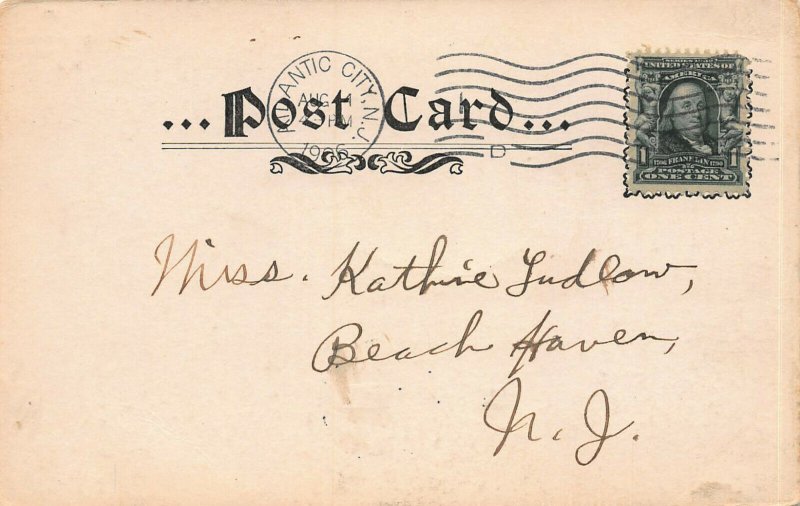 ATLANTIC CITY, N.J.
AUG
PM
1906
...Post Card...
D
SERIES 1902
UNITED STATES OF
AMERICA
1 1706 FRANKLIN 1790 1
POSTAGE
ONE CENT
Miss. Kathrie Ludlow,
Beach Haven,
N. J.